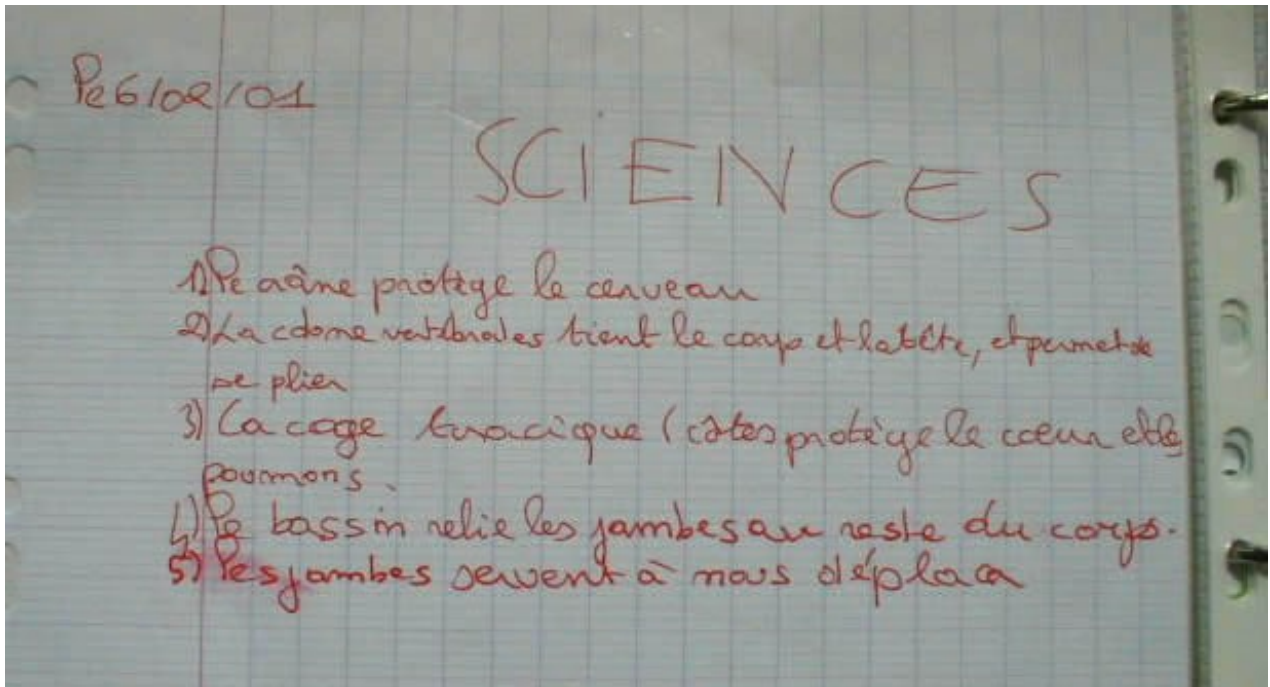 Le 6/02/01
SCIENCES
1) Le crâne protège le cerveau
2) La colone vertébrales tient le corps et la tête, et permet de
se plier
3) La cage toracique (côtes protège le coeur et les
poumons.
4) Le bassin relie les jambes au reste du corps.
5) Les jambes servent à nous déplacer